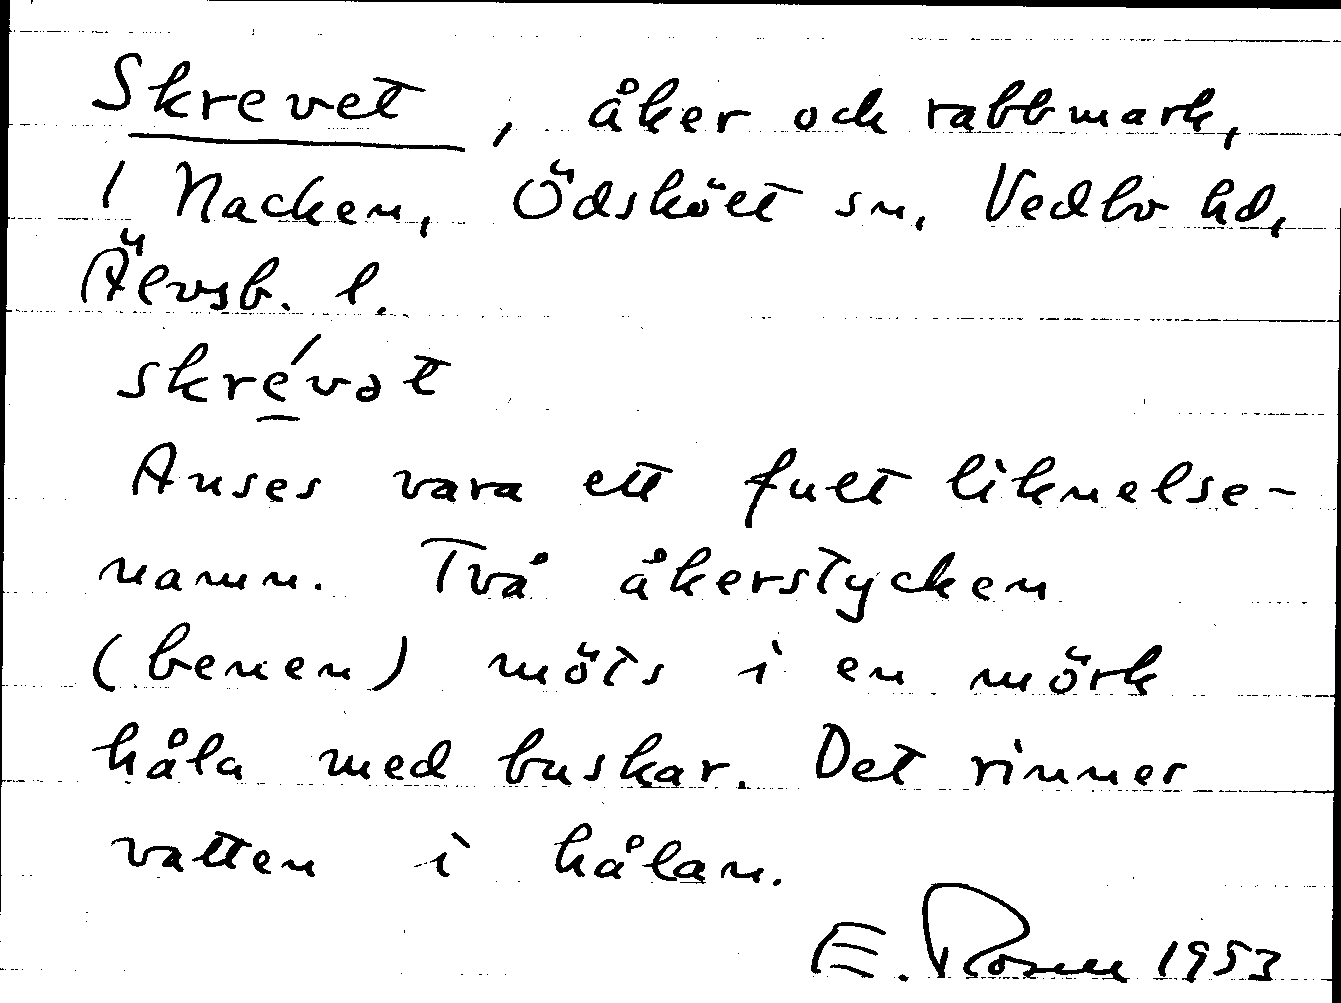 Skrevet, åker och rabbmark,
1 Nacken, Ödskölt sn, Vedbo hd,
Älvsb. l.
skré̱vət
Anses vara ett fult liknelse-
namn. Två åkerstycken
(benen) möts i en mörk
håla med buskar. Det rinner
vatten i hålan.
E. Rosén 1953